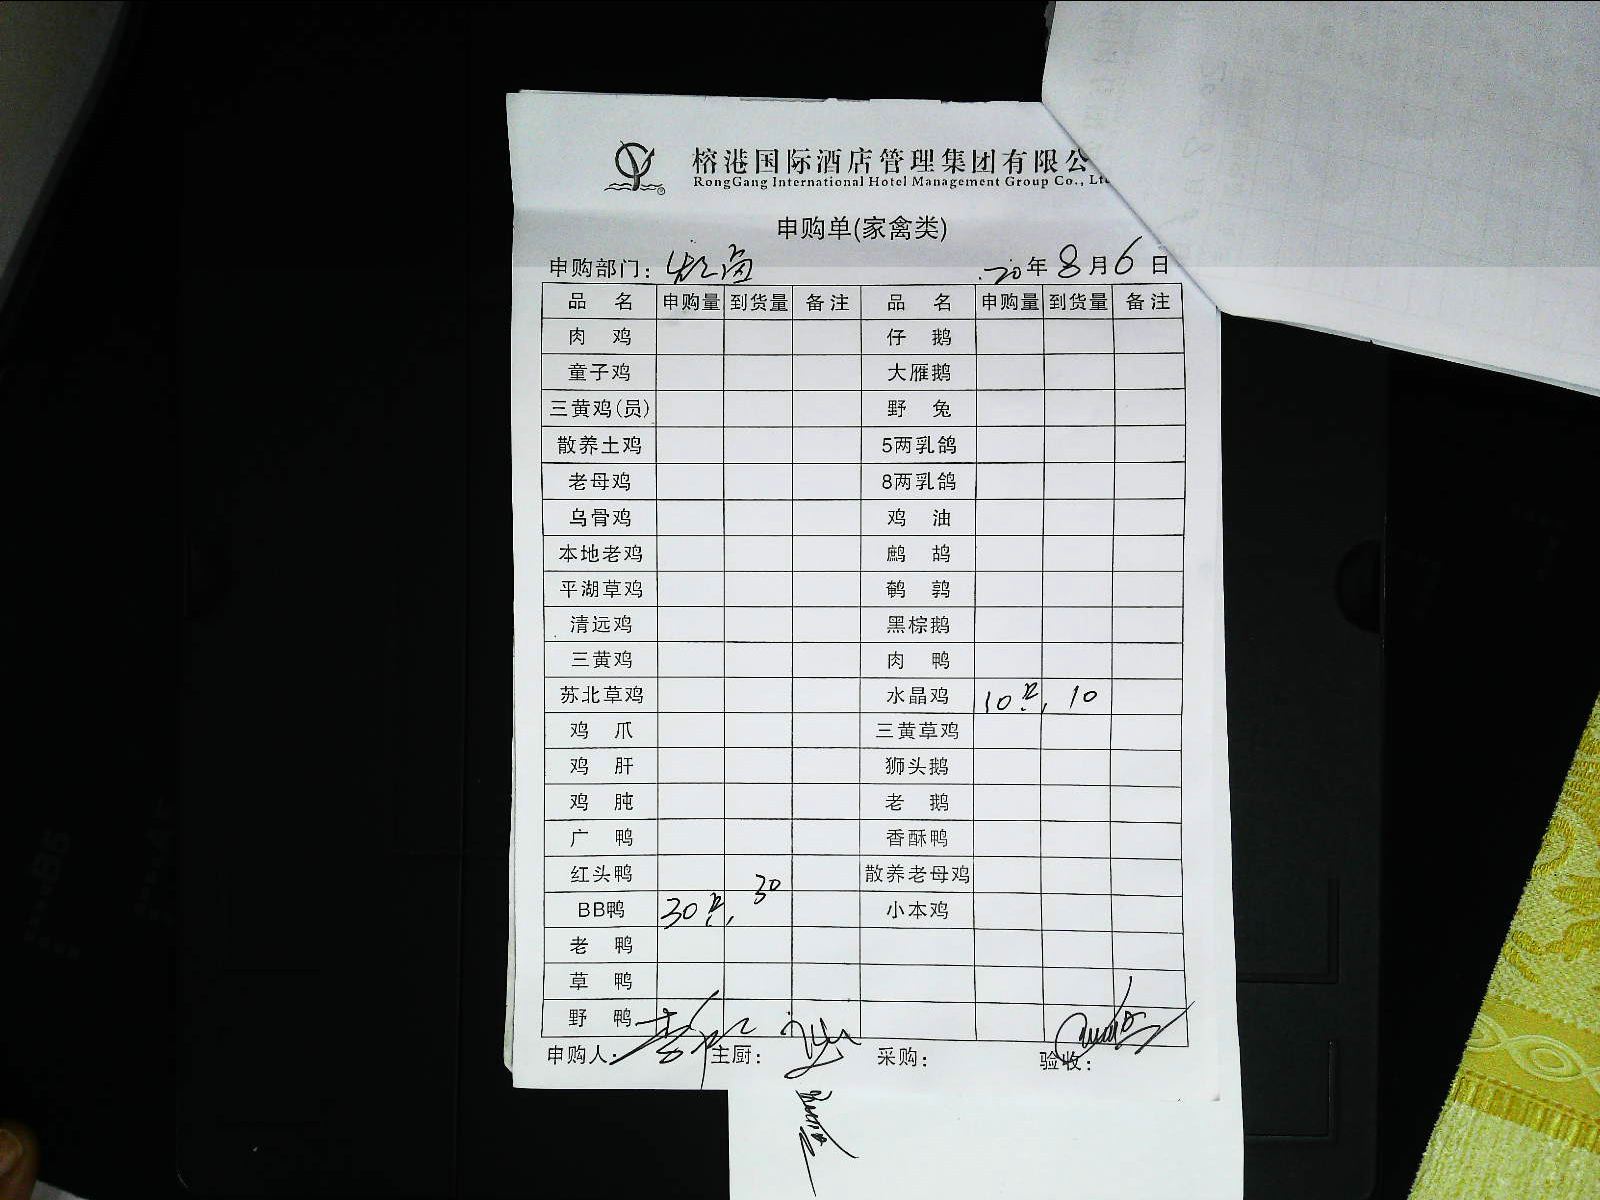 榕港国际酒店管理集团有限公
RongGang International Hotel Management Group Co., Lt
申购单(家禽类)
申购部门: 20年8月6日
品名 申购量 到货量 备注 品名 申购量 到货量 备注
肉鸡 仔鹅
童子鸡 大雁鹅
三黄鸡(员) 野兔
散养土鸡 5两乳鸽
老母鸡 8两乳鸽
乌骨鸡 鸡油
本地老鸡 鹧鸪
平湖草鸡 鹌鹑
清远鸡 黑棕鹅
三黄鸡 肉鸭
苏北草鸡 水晶鸡 10只, 10
鸡爪 三黄草鸡
鸡肝 狮头鹅
鸡肫 老鹅
广鸭 香酥鸭
红头鸭 散养老母鸡
BB鸭 30只, 30 小本鸡
老鸭
草鸭
野鸭
申购人: 主厨: 采购: 验收: